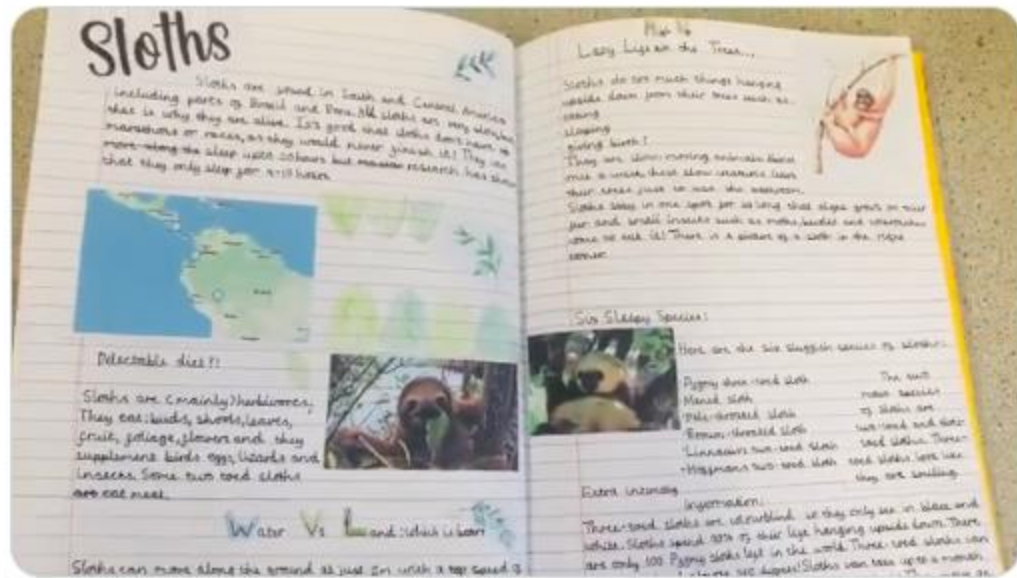 Sloths
Sloths are found in South and Central America
including parts of Brazil and Peru. All sloths are very slow, but
that is why they are alive. It's good that sloths don't have to
marathons or races, as they would never finish it! They can
sleep upto 20hours but research has shown
that they only sleep for 9-10 hours
Delectable diet?!
Sloths are (mainly) herbivores,
They eat: buds, shoots, leaves,
fruit, foliage, flowers and they
supplement birds eggs, lizards and
insects. Some two toed sloths
eat meat.
Water Vs Land: Which is best
Sloths can move along the ground at just 3m with a top speed of
High Up
Lazy Ligs in the Trees...
Sloths do as much things hanging
upside down from their trees such as:
eating
sleeping
giving birth!
They are slow moving animals
once a week these slow creatures leave
their trees just to use the
Sloths stay in one spot for so long that algae grows on their
fur and small insects such as moths, beetles and cockroaches
come to eat it! There is a picture of a sloth in the right
corner.
Six Sleepy Species:
Here are the six sluggish species of sloths:
Pygmy three-toed sloth
Maned sloth
Pale-throated sloth
Brown-throated sloth
Linnaeus's two-toed sloth
Hoffmans two-toed sloth
The two
main species
of sloths are
two-toed and three-
toed sloths. Three-
toed sloths look like
they are smiling.
Extra
Information:
Three-toed sloths are colourblind so they only see in black and
white. Sloths spend 90% of their life hanging upside down. There
are only 100 Pygmy sloths left in the world. Three-toed sloths can
Sloths can take up to a month